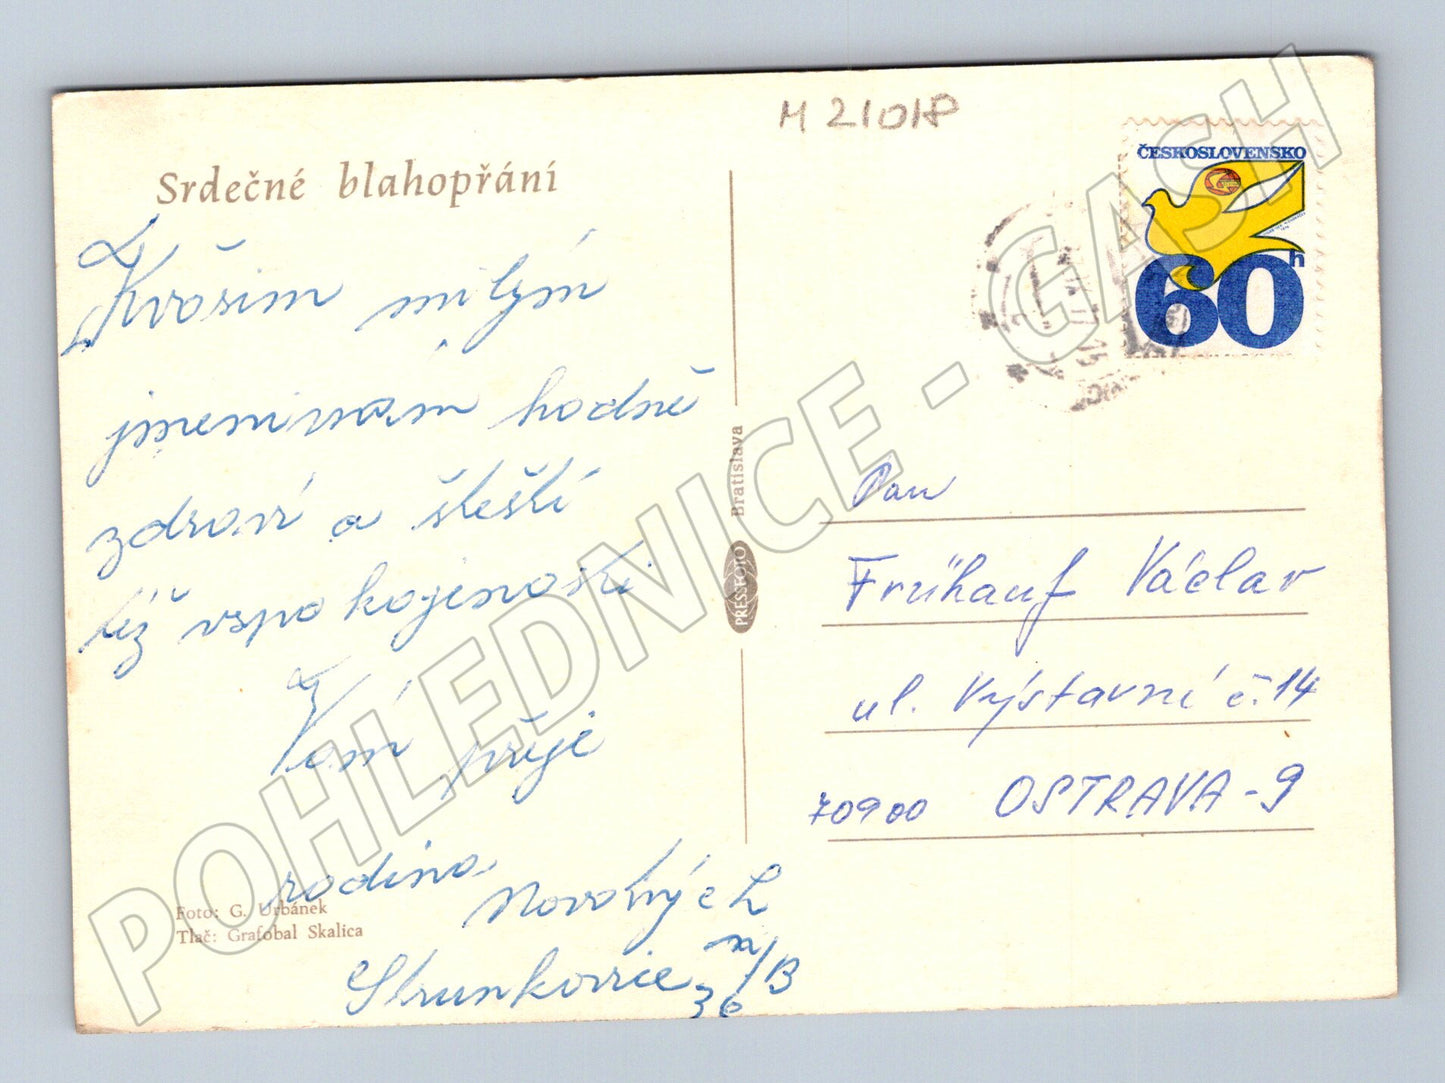 M 21018
Srdečné blahopřání
ČESKOSLOVENSKO
60 h
K vašim milým
jmeninám hodně
zdraví a štěstí
též vspokojenosti.
Vám přeje
rodina
Novotných
Strunkovice n/B
36
Foto: G. Urbánek
Tlač: Grafobal Skalica
PRESSFOTO Bratislava
Pan
Frühauf Václav
ul. Výstavní č. 14
70900 OSTRAVA-9
POHLEDNICE - GASH